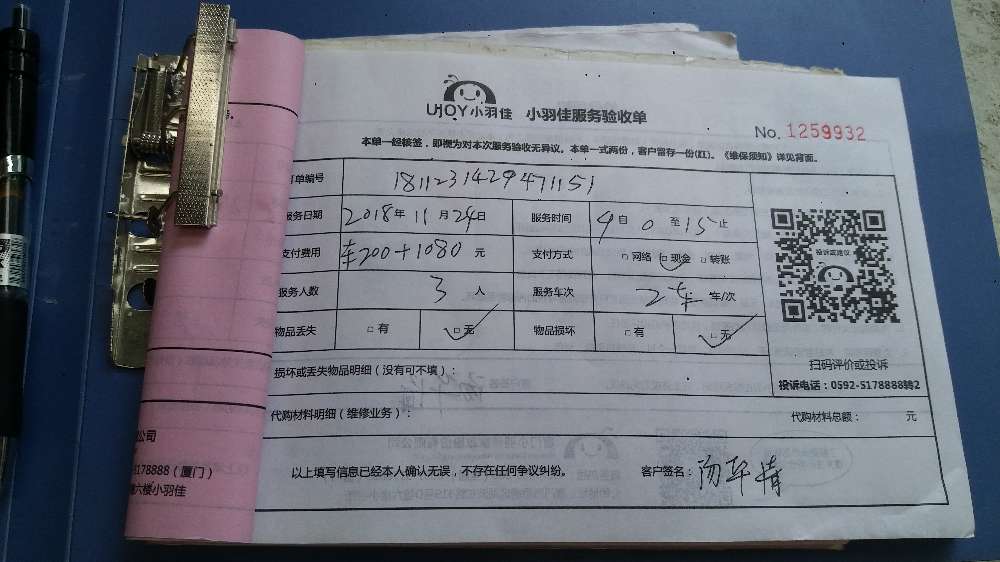 UHOY小羽佳 小羽佳服务验收单
No. 1259932
本单一经核签，即视为对本次服务验收无异议。本单一式两份，客户留存一份(红)。《维保须知》详见背面。
订单编号 1811231429471151
服务日期 2018年11月24日 服务时间 9 自 0 至 15 止
支付费用 车200+1080 元 支付方式 □网络 □现金 □转账
服务人数 3 人 服务车次 2车 车/次
物品丢失 □有 □无 物品损坏 □有 □无
投诉或建议
扫码评价或投诉
投诉电话：0592-5178888转2
损坏或丢失物品明细（没有可不填）：
代购材料明细（维修业务）： 代购材料总额： 元
以上填写信息已经本人确认无误，不存在任何争议纠纷。 客户签名：
公司
5178888（厦门）
六楼小羽佳